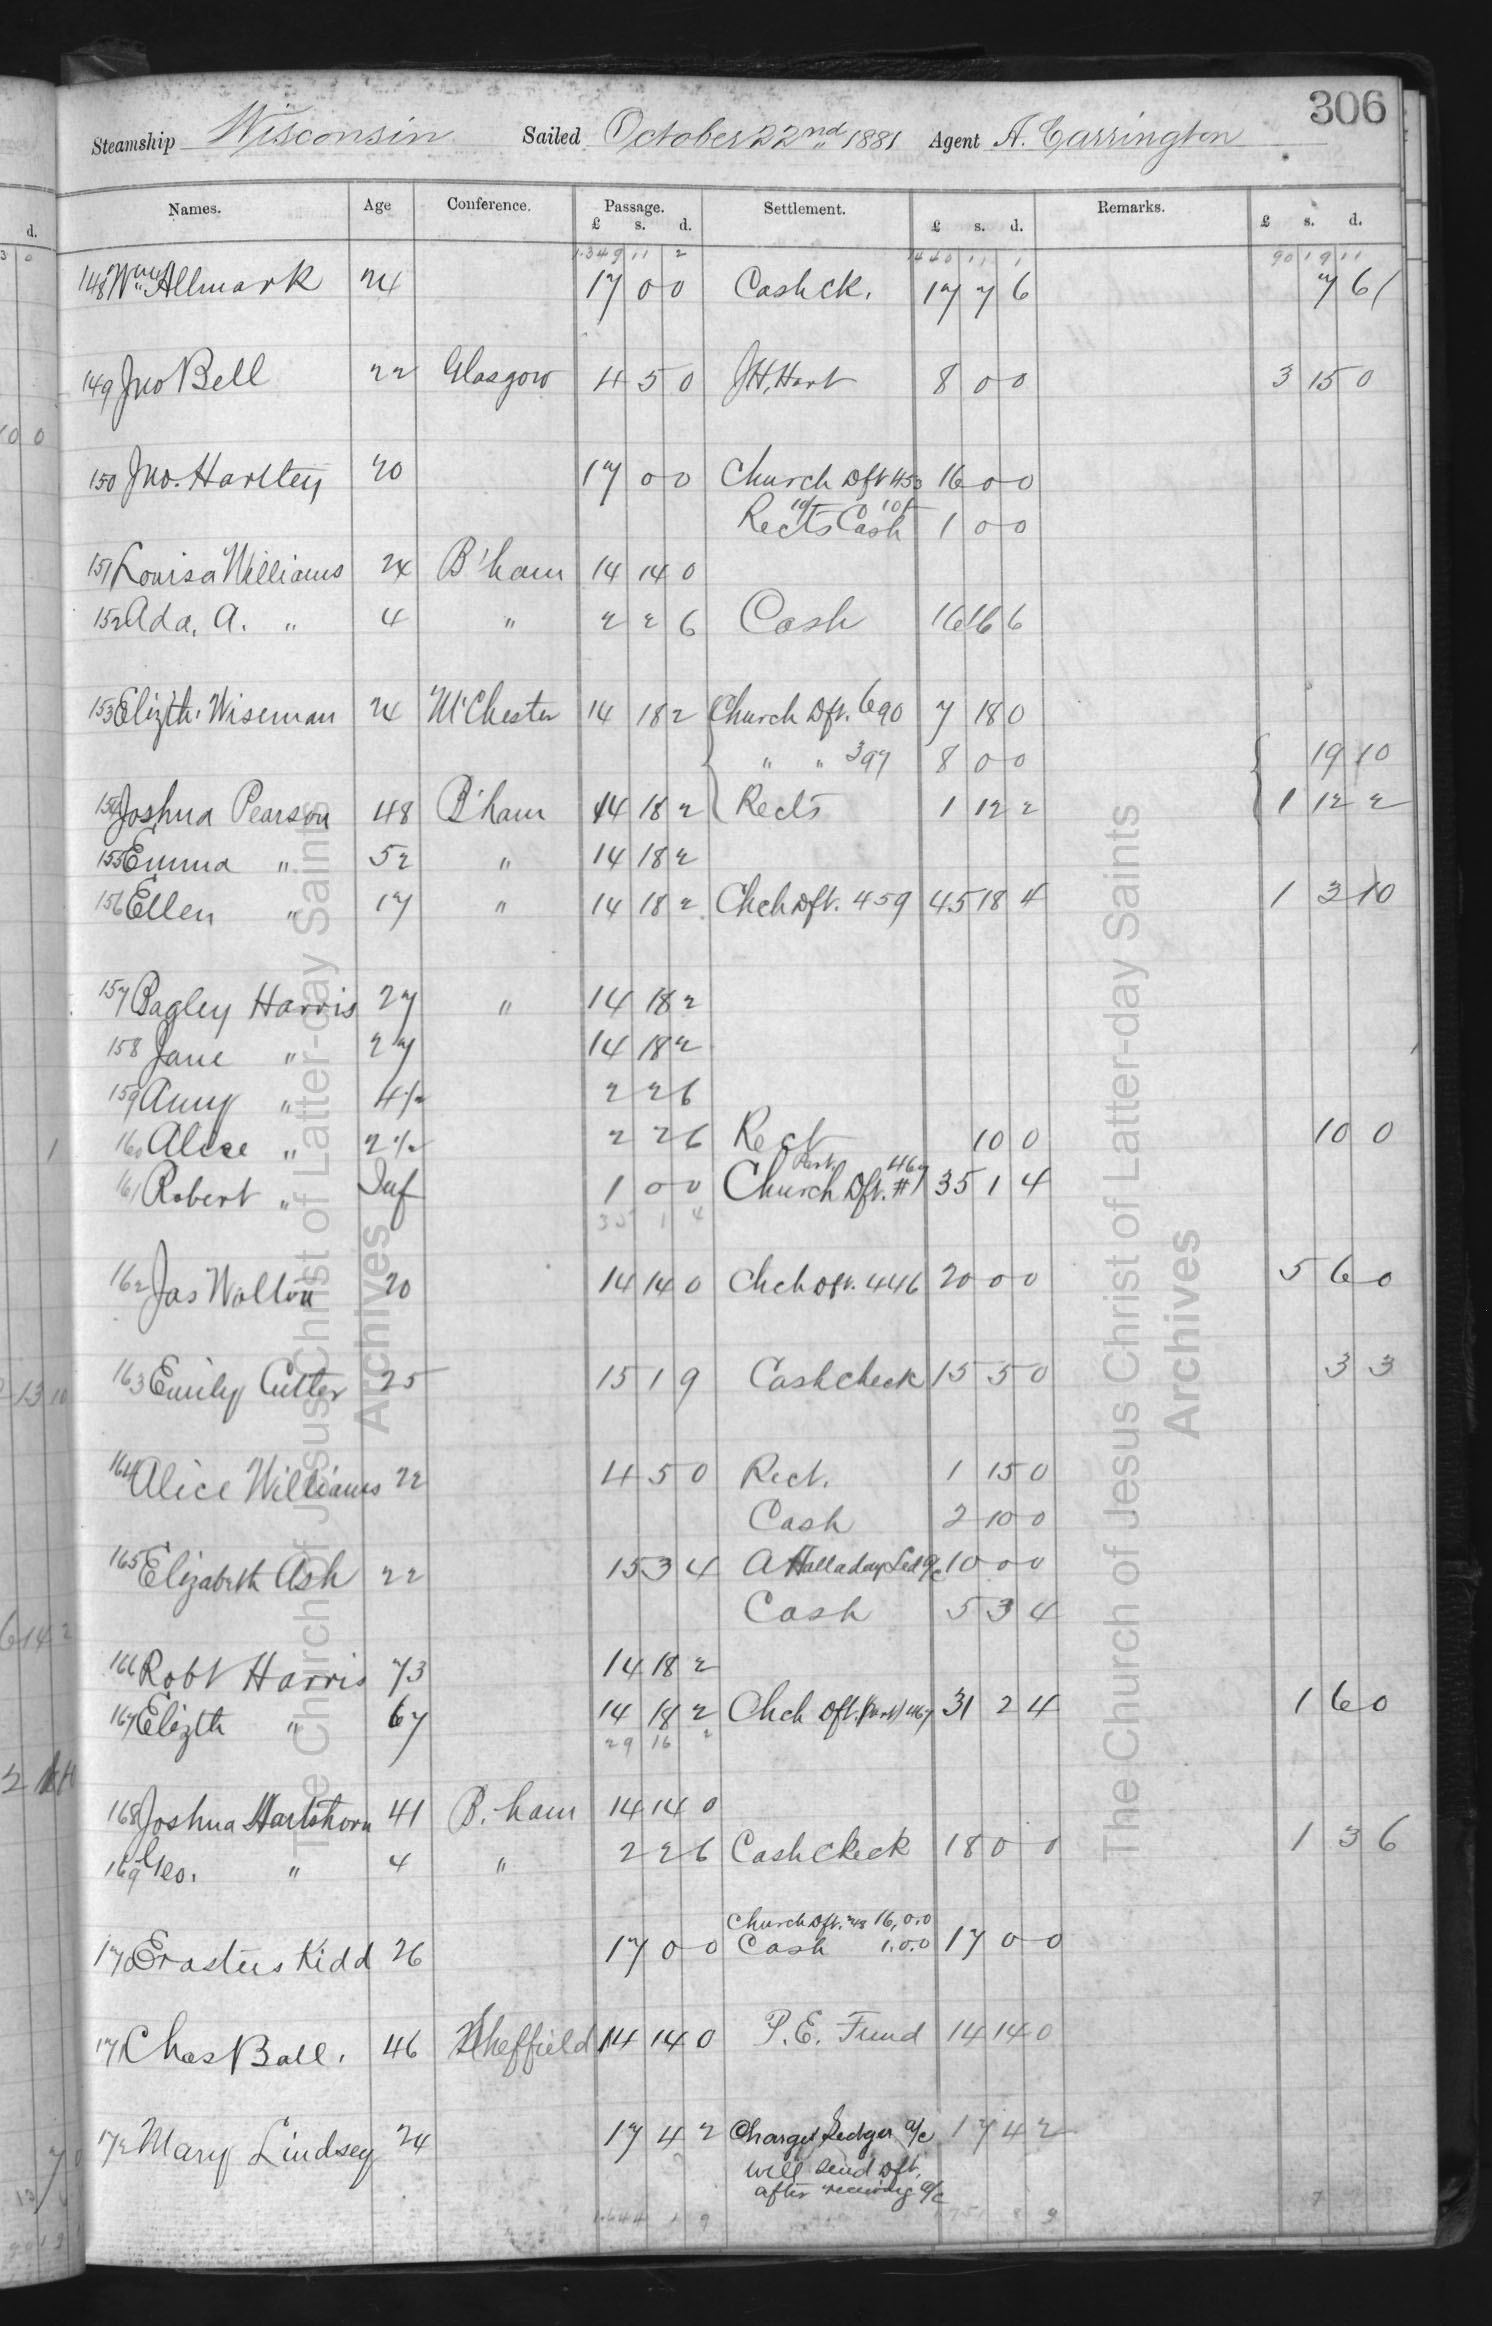 306
Steamship Wisconsin Sailed October 22nd 1881 Agent A. Carrington
Names. Age Conference. Passage. Settlement. Remarks.
£ s. d. £ s. d. £ s. d.
1349 11 2 1440 11 1 90 19 11
148 Wm Allmark 24 17 0 0 Cash ck. 17 7 6 7 6
149 Jno Bell 22 Glasgow 4 5 0 J H, Hart 8 0 0 3 15 0
150 Jno. Hartley 20 17 0 0 Church Dft 453 16 0 0
Rects 10/ Cash 10/ 1 0 0
151 Louisa Williams 24 B'ham 14 14 0
152 Ada, A. " 4 " 2 2 6 Cash 16 16 6
153 Elizth. Wiseman 24 M'Chester 14 18 2 Church Dft. 690 7 18 0
" " 397 8 0 0 19 10
154 Joshua Pearson 48 B'ham 14 18 2 Rects 1 12 2 1 12 2
155 Emma " 52 " 14 18 2
156 Ellen " 17 " 14 18 2 Chch Dft. 459 45 18 4 1 3 10
157 Bagley Harris 27 " 14 18 2
158 Jane " 27 14 18 2
159 Amy " 4½ 2 2 6
160 Alice " 2½ 2 2 6 Rect 10 0 10 0
161 Robert " Inf 1 0 0 Church Part. Dft. # 467 35 1 4
35 1 4
162 Jas Walton 20 14 14 0 Chch Dft. 446 20 0 0 5 6 0
163 Emily Cutler 25 15 1 9 Cash check 15 5 0 3 3
164 Alice Williams 22 4 5 0 Rect. 1 15 0
Cash 2 10 0
165 Elizabeth Ash 22 15 3 4 A Halladay Led a/c 10 0 0
Cash 5 3 4
166 Robt Harris 73 14 18 2
167 Elizth " 67 14 18 2 Chch Dft. (Part) 467 31 2 4 1 6 0
29 16 2
168 Joshua Hartshorn 41 B. ham 14 14 0
169 Geo. " 4 " 2 2 6 Cash Check 18 0 0 1 3 6
Church Dft. 16,0.0
170 Erastus Kidd 26 17 0 0 Cash 1.0.0 17 0 0
171 Chas Ball. 46 Sheffield 14 14 0 P. E. Fund 14 14 0
172 Mary Lindsey 24 17 4 2 Charged Ledger a/c 17 4 2
will send Dft.
after receiving a/c
1644 1 9 1751 8 9
The Church of Jesus Christ of Latter-day Saints
Archives
The Church of Jesus Christ of Latter-day Saints
Archives